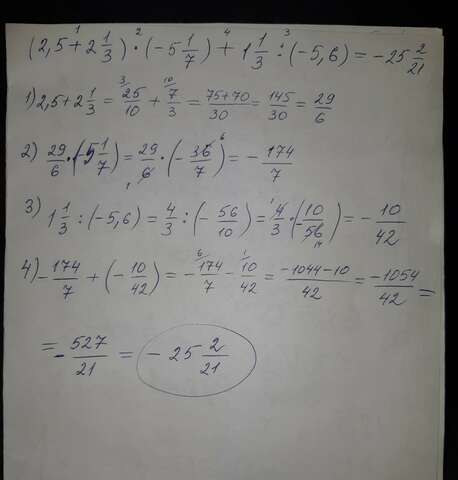 (2,5 + 2 1/3) · (-5 1/7) + 1 1/3 : (-5,6) = -25 2/21
1) 2,5 + 2 1/3 = 25/10 + 7/3 = 75+70/30 = 145/30 = 29/6
2) 29/6 · (-5 1/7) = 29/6 · (-36/7) = -174/7
3) 1 1/3 : (-5,6) = 4/3 : (-56/10) = 4/3 · (-10/56) = -10/42
4) -174/7 + (-10/42) = -174/7 - 10/42 = -1044-10/42 = -1054/42 =
= -527/21 = -25 2/21